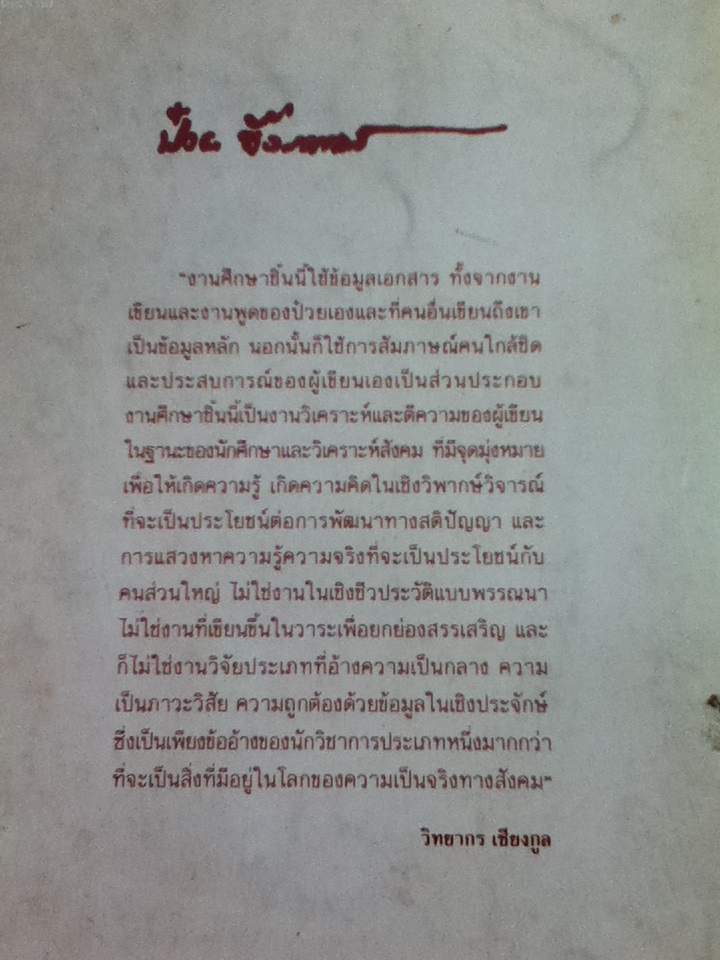 ป๋วย อึ๊งภากรณ์
"งานศึกษาชิ้นนี้ใช้ข้อมูลเอกสาร ทั้งจากงาน
เขียนและงานพูดของป๋วยเองและที่คนอื่นเขียนถึงเขา
เป็นข้อมูลหลัก นอกนั้นก็ใช้การสัมภาษณ์คนใกล้ชิด
และประสบการณ์ของผู้เขียนเองเป็นส่วนประกอบ
งานศึกษาชิ้นนี้เป็นงานวิเคราะห์และตีความของผู้เขียน
ในฐานะของนักศึกษาและวิเคราะห์สังคม ที่มีจุดมุ่งหมาย
เพื่อให้เกิดความรู้ เกิดความคิดในเชิงวิพากษ์วิจารณ์
ที่จะเป็นประโยชน์ต่อการพัฒนาทางสติปัญญา และ
การแสวงหาความรู้ความจริงที่จะเป็นประโยชน์กับ
คนส่วนใหญ่ ไม่ใช่งานในเชิงชีวประวัติแบบพรรณนา
ไม่ใช่งานที่เขียนขึ้นในวาระเพื่อยกย่องสรรเสริญ และ
ก็ไม่ใช่งานวิจัยประเภทที่อ้างความเป็นกลาง ความ
เป็นภาวะวิสัย ความถูกต้องด้วยข้อมูลในเชิงประจักษ์
ซึ่งเป็นเพียงข้ออ้างของนักวิชาการประเภทหนึ่งมากกว่า
ที่จะเป็นสิ่งที่มีอยู่ในโลกของความเป็นจริงทางสังคม"
วิทยากร เชียงกูล